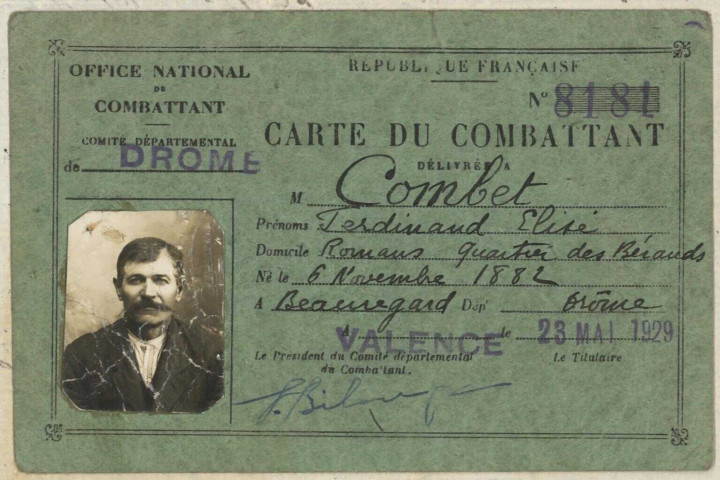 OFFICE NATIONAL
DU
COMBATTANT
COMITÉ DÉPARTEMENTAL
de DROME
RÉPUBLIQUE FRANÇAISE
N° 8181
CARTE DU COMBATTANT
DÉLIVRÉE A
M Combet
Prénoms Ferdinand Elisé
Domicile Romans quartier des Bérauds
Né le 6 Novembre 1882
A Beauregard Dépt Drôme
A VALENCE le 23 MAI 1929
Le Président du Comité départemental
du Combattant.
Le Titulaire